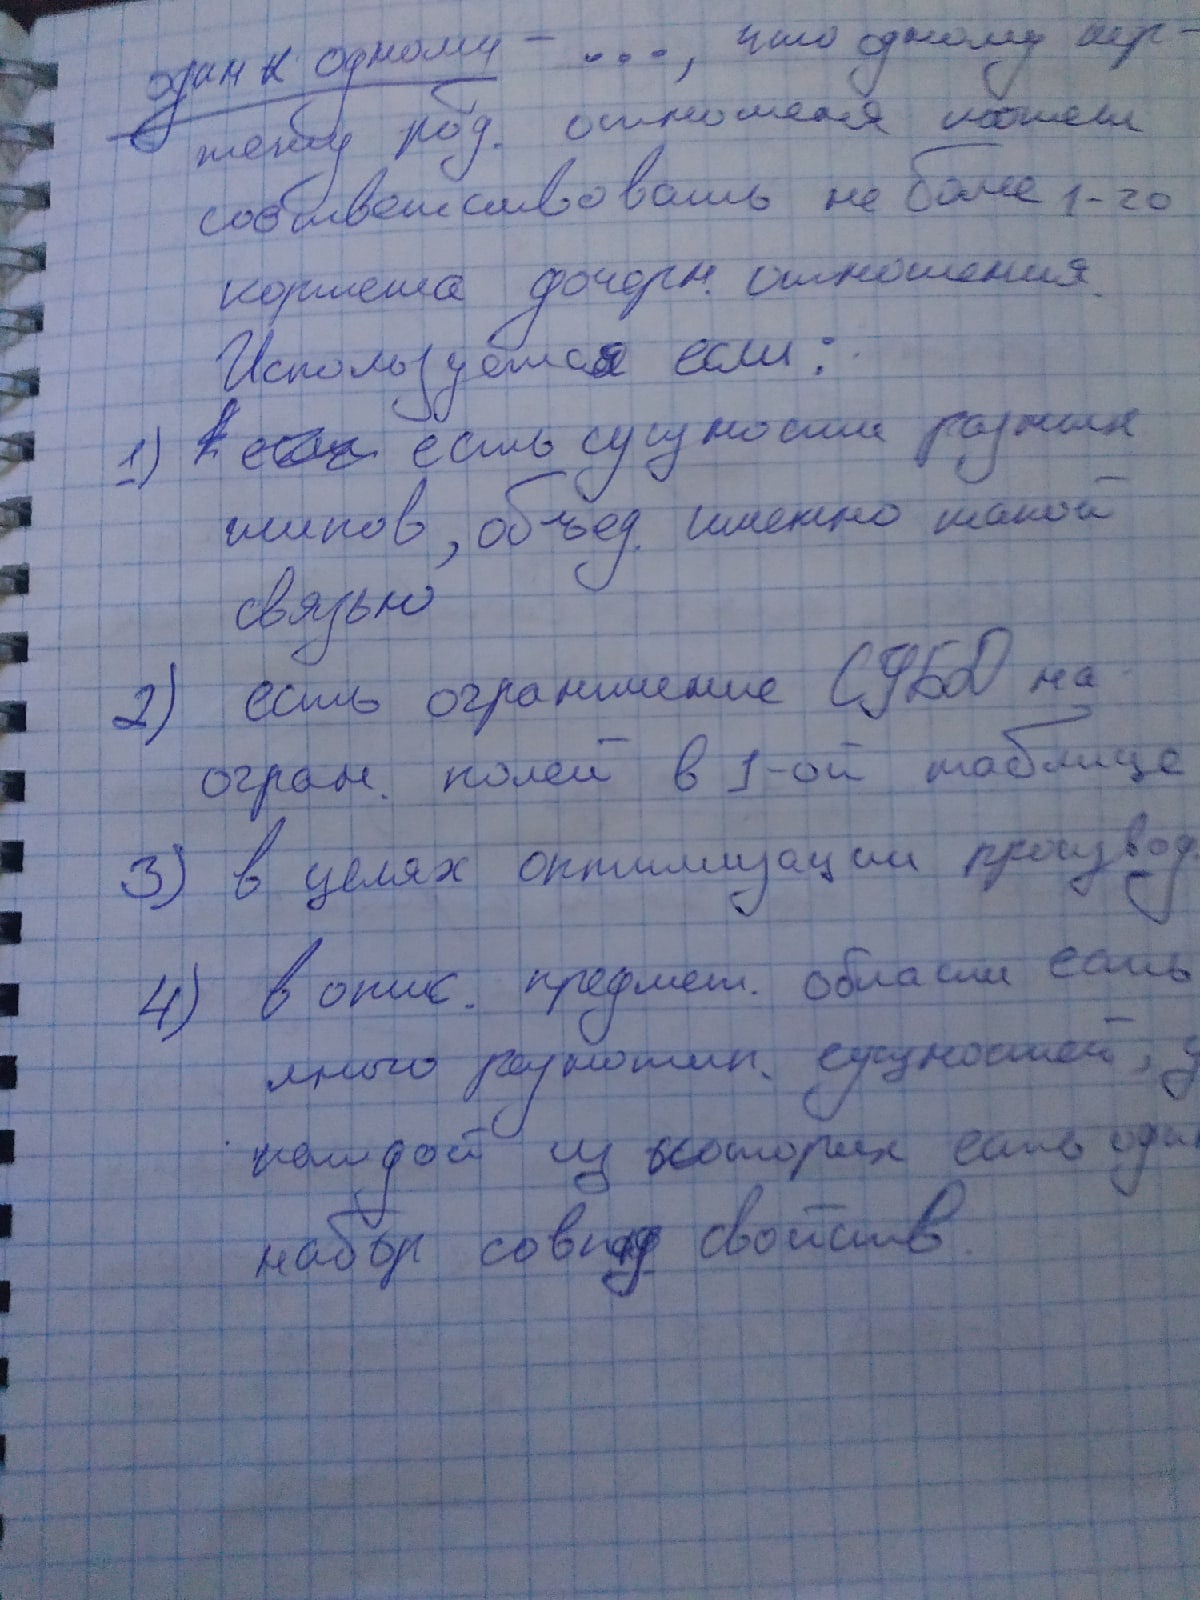 один к одному - ..., что одному кор-
тежу род. отношения может
соответствовать не более 1-го
кортежа дочерн. отношения.
Используется если:
1) есть сущности разных
типов, объед. именно такой
связью
2) есть ограничение СУБД на
огран. полей в 1-ой таблице
3) в целях оптимизации производ.
4) в опис. предмет. области есть
много разнотип. сущностей, у
каждой из которых есть один
набор совпад свойств.